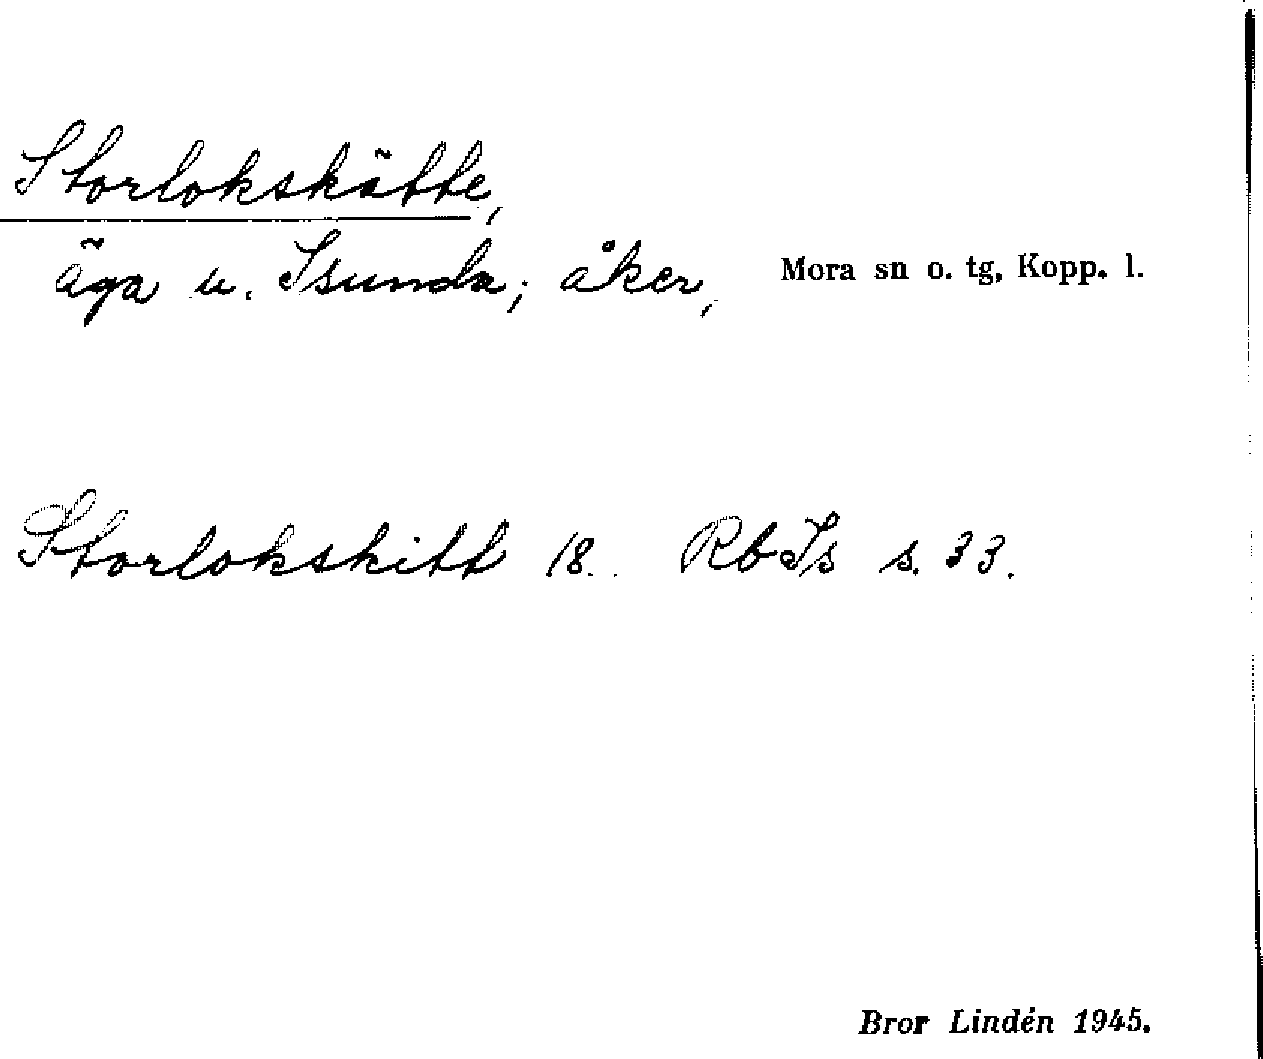 Storlokskätte,
äga u. Isunda; åker, Mora sn o. tg, Kopp. l.
Storlokskitt 18.. RbIs s. 33.
Bror Lindén 1945.